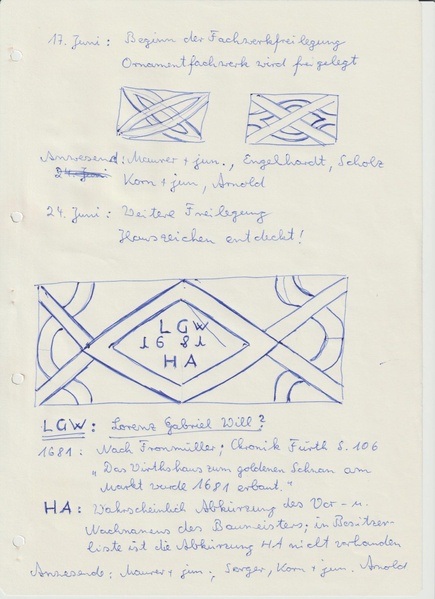 17. Juni: Beginn der Fachwerkfreilegung
Ornamentfachwerk wird freigelegt
Anwesend: Maurer + jun., Engelhardt, Scholz
24. Juni
Korn + jun, Arnold
24. Juni: Weitere Freilegung
Hauszeichen entdeckt!
LGW
1681
HA
LGW: Lorenz Gabriel Will?
1681: Nach Fronmüller; Chronik Fürth S. 106
„Das Wirthshaus zum goldenen Schwan am
Markt wurde 1681 erbaut."
HA: Wahrscheinlich Abkürzung des Vor- u.
Nachnamens des Baumeisters; in Besitzer-
liste ist die Abkürzung HA nicht vorhanden
Anwesende: Maurer + jun., Sorger, Korn + jun. Arnold